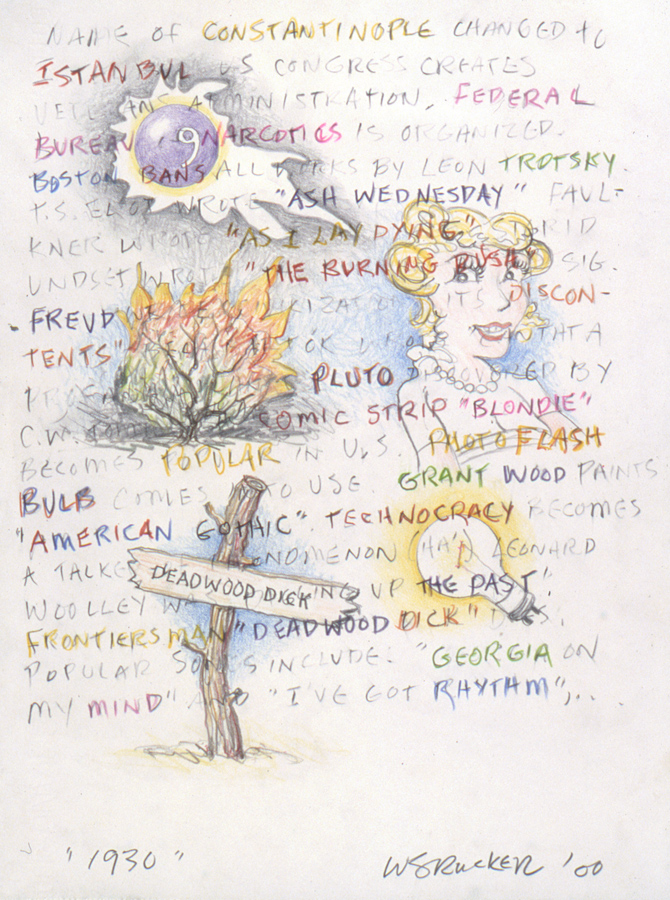 NAME OF CONSTANTINOPLE CHANGED TO
ISTANBUL US CONGRESS CREATES
ADMINISTRATION, FEDERAL
BUREAU NARCOTICS IS ORGANIZED.
BOSTON BANS ALL WORKS BY LEON TROTSKY.
T.S. ELIOT WROTE "ASH WEDNESDAY" FAUL-
KNER WROTE "AS I LAY DYING"
UNDSET WROTE "THE BURNING BUSH" SIG.
FREUD ITS DISCON-
TENTS" THAT A
PLUTO DISCOVERED BY
C.W. COMIC STRIP "BLONDIE"
BECOMES POPULAR IN U.S. PHOTOFLASH
BULB COMES INTO USE. GRANT WOOD PAINTS
"AMERICAN GOTHIC". TECHNOCRACY BECOMES
A TALKED PHENOMENON (HA!) LEONARD
WOOLLEY UP THE PAST".
FRONTIERSMAN "DEADWOOD DICK" DIES.
POPULAR SONGS INCLUDE: "GEORGIA ON
MY MIND" AND "I'VE GOT RHYTHM",...
9
DEADWOOD DICK
"1930"
WSRUCKER '00